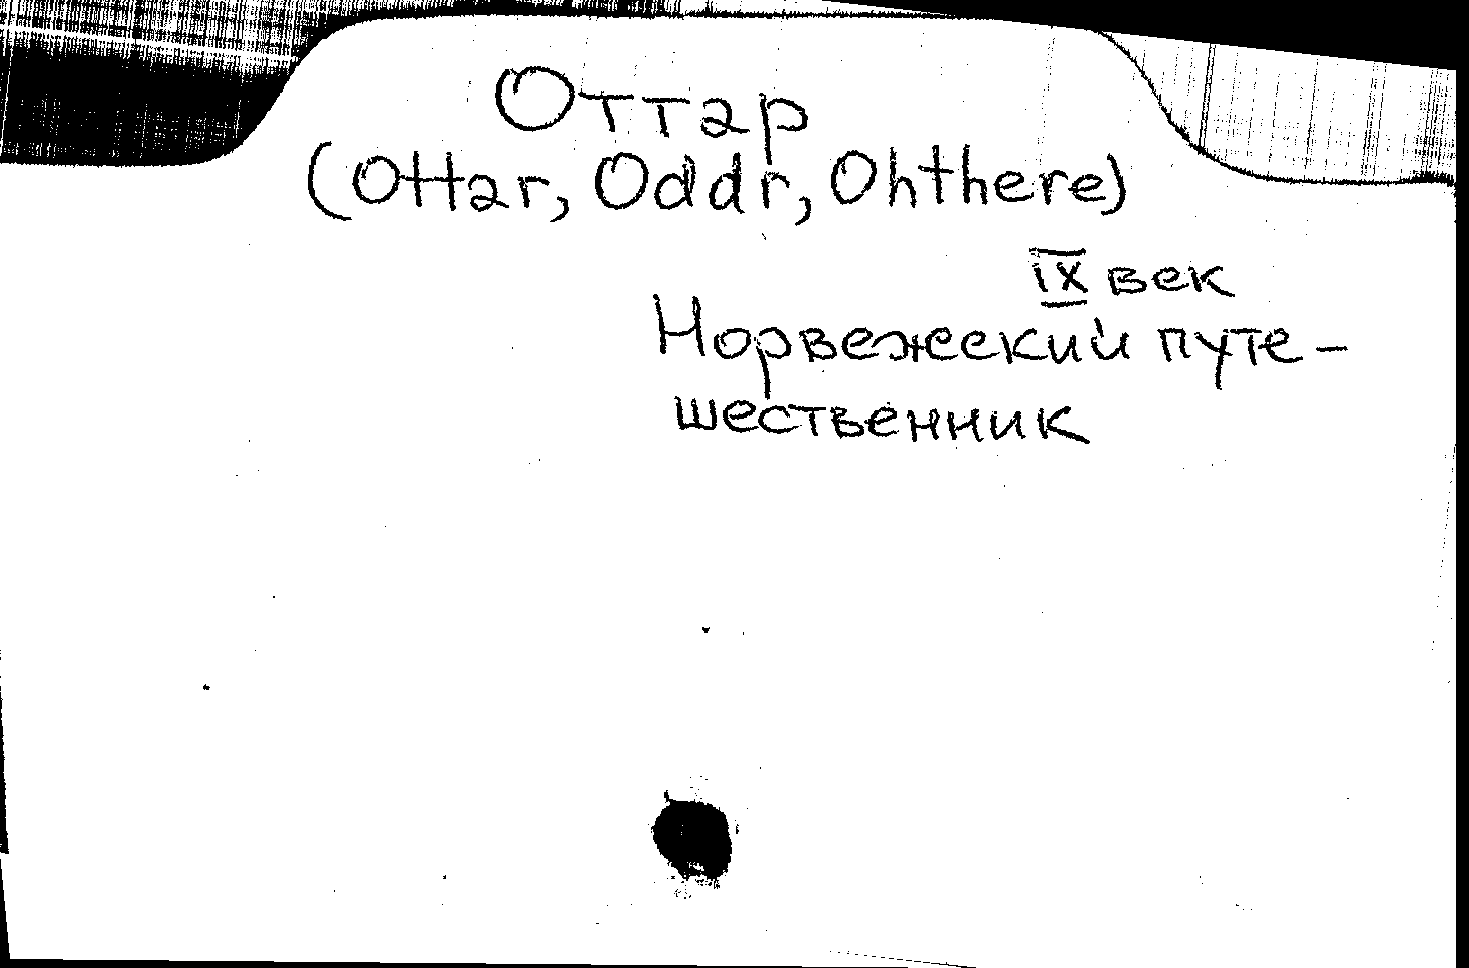 Оттар
(Ottar, Oddr, Ohthere)
IX век
Норвежский путе-
шественник